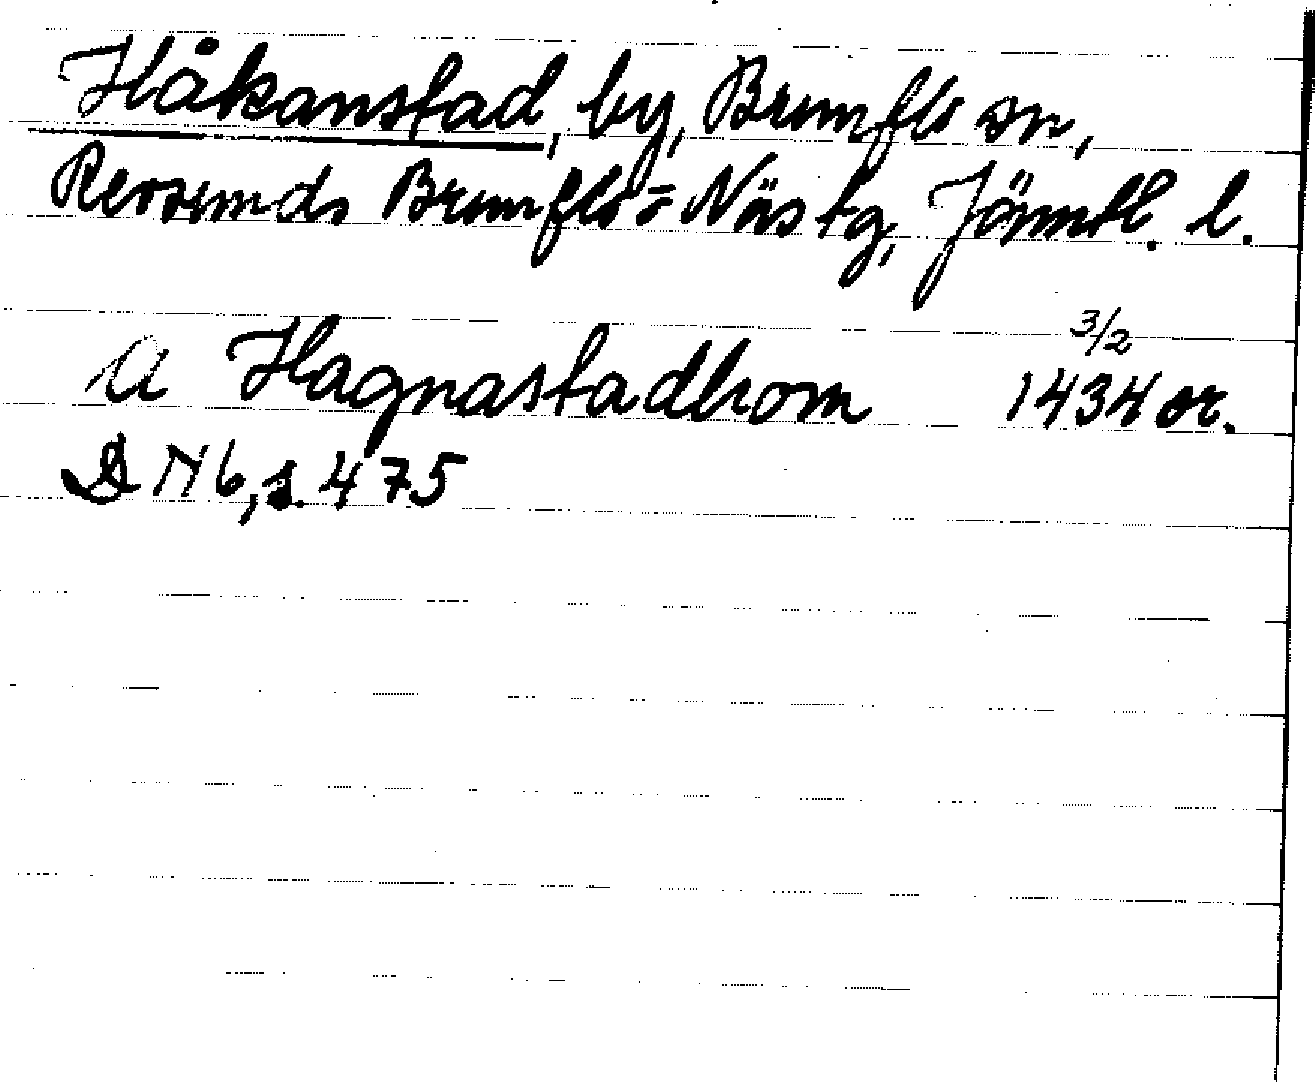 Håkanstad, by, Brunflo sn,
Revsunds Brunflo= Näs tg, Jämtl. l.
a Hagnastadhom 3/2 1434 or.
DN 6, s. 475